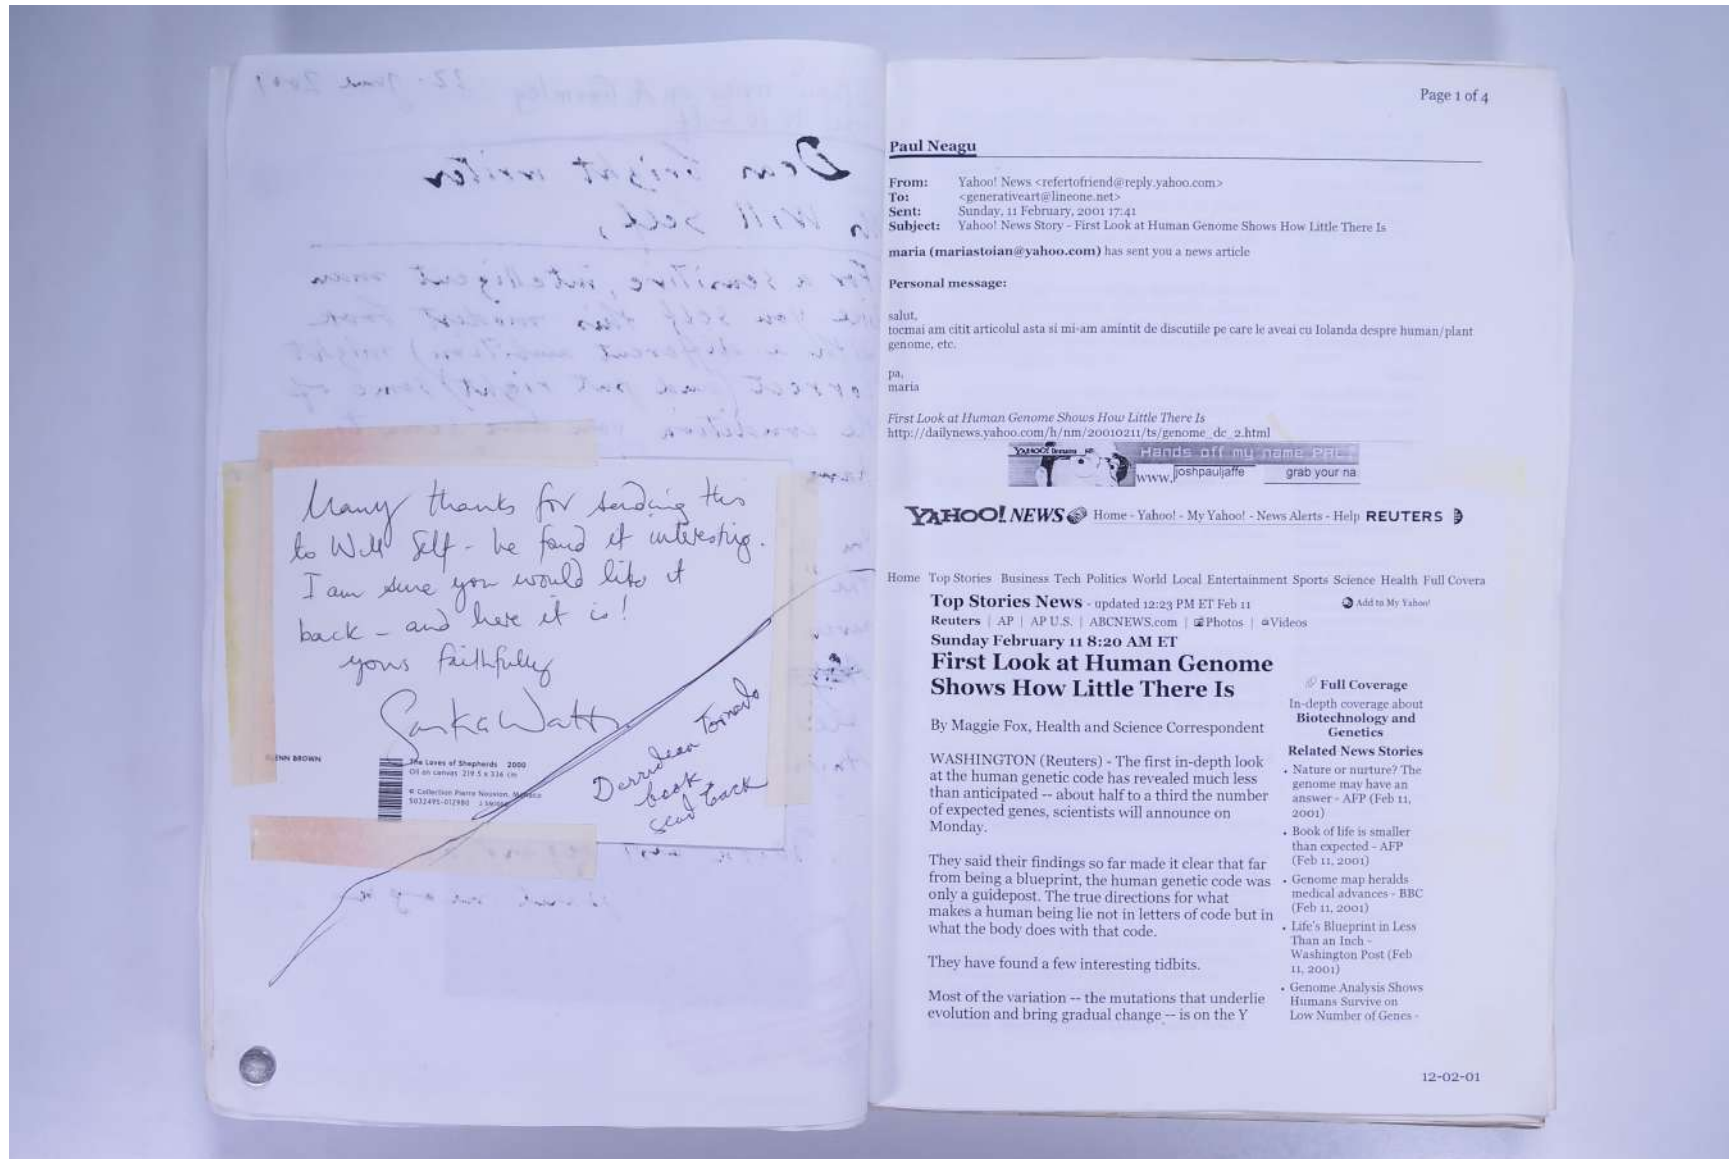 22 June 2001
Dear bright writer
Will Self,
For a sensitive, intelligent man
like you self this modest book
with a different ambition) might
correct (and put right) some of
the condition
Many thanks for sending this
to Will Self - he found it interesting.
I am sure you would like it
back - and here it is!
yours faithfully
GLENN BROWN
The Loves of Shepherds 2000
Oil on canvas 219.5 x 336 cm
© Collection Pierre Nouvion, Monaco
5032495-012980
Derridean Tornado
book
send back
Page 1 of 4
Paul Neagu
From: Yahoo! News <refertofriend@reply.yahoo.com>
To: <generativeart@lineone.net>
Sent: Sunday, 11 February, 2001 17:41
Subject: Yahoo! News Story - First Look at Human Genome Shows How Little There Is
maria (mariastoian@yahoo.com) has sent you a news article
Personal message:
salut,
tocmai am citit articolul asta si mi-am amintit de discutiile pe care le aveai cu Iolanda despre human/plant
genome, etc.
pa,
maria
First Look at Human Genome Shows How Little There Is
http://dailynews.yahoo.com/h/nm/20010211/ts/genome_dc_2.html
YAHOO! Domains
Hands off my name PAL!
www. joshpauljaffe grab your na
YAHOO! NEWS Home - Yahoo! - My Yahoo! - News Alerts - Help REUTERS
Home Top Stories Business Tech Politics World Local Entertainment Sports Science Health Full Covera
Top Stories News - updated 12:23 PM ET Feb 11
Add to My Yahoo!
Reuters | AP | AP U.S. | ABCNEWS.com | Photos | Videos
Sunday February 11 8:20 AM ET
First Look at Human Genome
Shows How Little There Is
By Maggie Fox, Health and Science Correspondent
WASHINGTON (Reuters) - The first in-depth look
at the human genetic code has revealed much less
than anticipated -- about half to a third the number
of expected genes, scientists will announce on
Monday.
They said their findings so far made it clear that far
from being a blueprint, the human genetic code was
only a guidepost. The true directions for what
makes a human being lie not in letters of code but in
what the body does with that code.
They have found a few interesting tidbits.
Most of the variation -- the mutations that underlie
evolution and bring gradual change -- is on the Y
Full Coverage
In-depth coverage about
Biotechnology and
Genetics
Related News Stories
• Nature or nurture? The
genome may have an
answer - AFP (Feb 11,
2001)
• Book of life is smaller
than expected - AFP
(Feb 11, 2001)
• Genome map heralds
medical advances - BBC
(Feb 11, 2001)
• Life's Blueprint in Less
Than an Inch -
Washington Post (Feb
11, 2001)
• Genome Analysis Shows
Humans Survive on
Low Number of Genes -
12-02-01